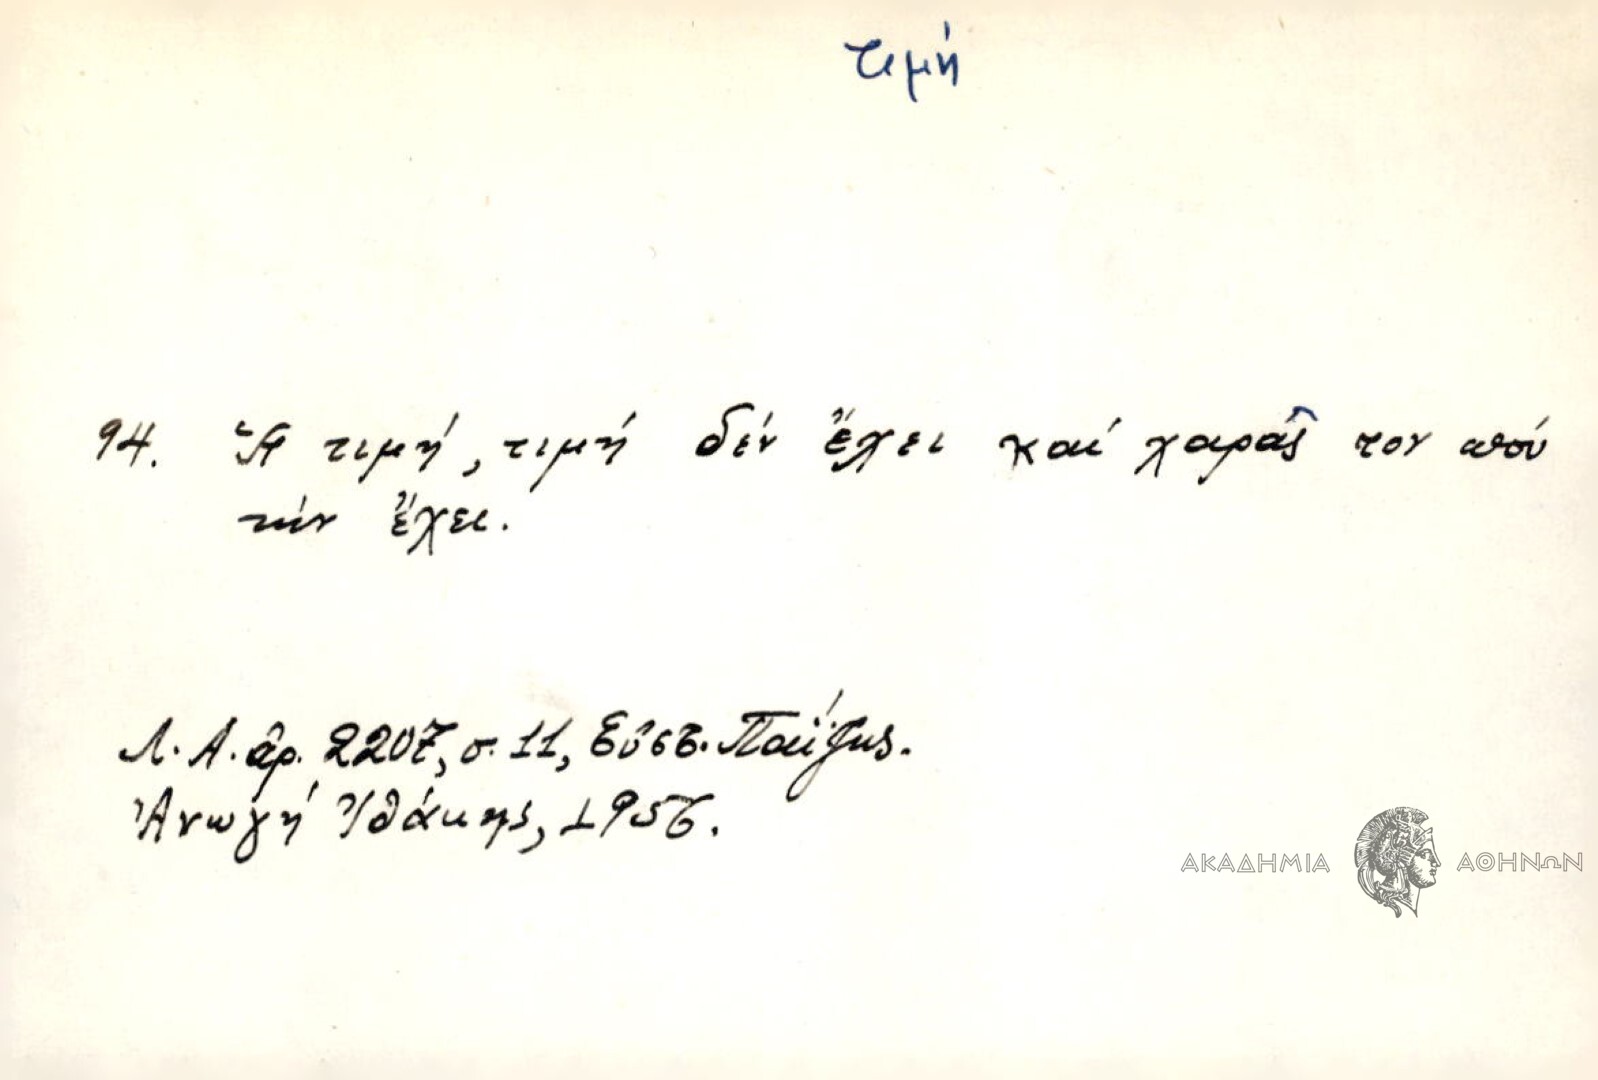 τιμή
94. Ἡ τιμή, τιμή δέν ἔχει καί χαρᾶς τον ἀπού
τήν ἔχει.
Λ. Α. ἀρ. 2207, σ. 11, Εὐστ. Παΐζης.
Ἀνωγή Ἰθάκης, 1956.
ΑΚΑΔΗΜΙΑ ΑΘΗΝΩΝ